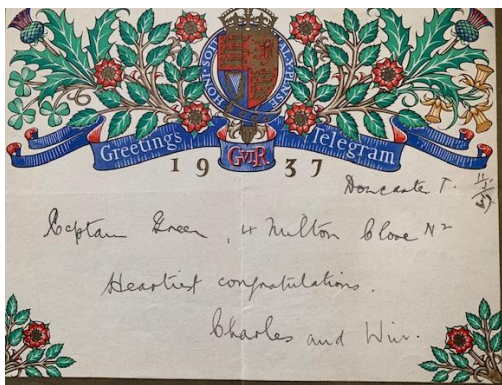 HONI·SOI
MAL·Y·PENSE
Greetings GviR Telegram
1937
Doncaster T. 11/5/37
Captain Green, 4 Milton Close N2
Heartiest congratulations.
Charles and Win.